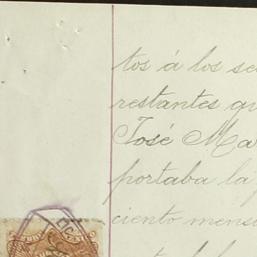 tos á los se
restantes qu
José Ma
portaba la p
ciento mens